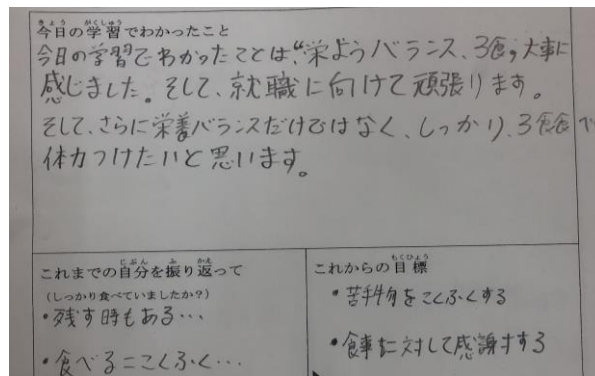 今日の学習でわかったこと
今日の学習でわかったことは、“栄ようバランス、3食、大事に
感じました。そして、就職に向けて頑張ります。
そして、さらに栄養バランスだけではなく、しっかり、3食食べ
体力つけたいと思います。
これまでの自分を振り返って
(しっかり食べていましたか?)
・残す時もある…
・食べる=こくふく…
これからの目標
・苦手物をこくふくする
・食事に対して感謝する